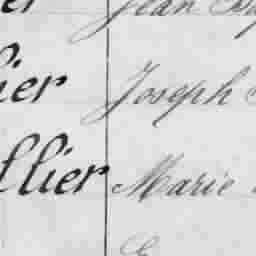 er Jean
lier Joseph
llier Marie